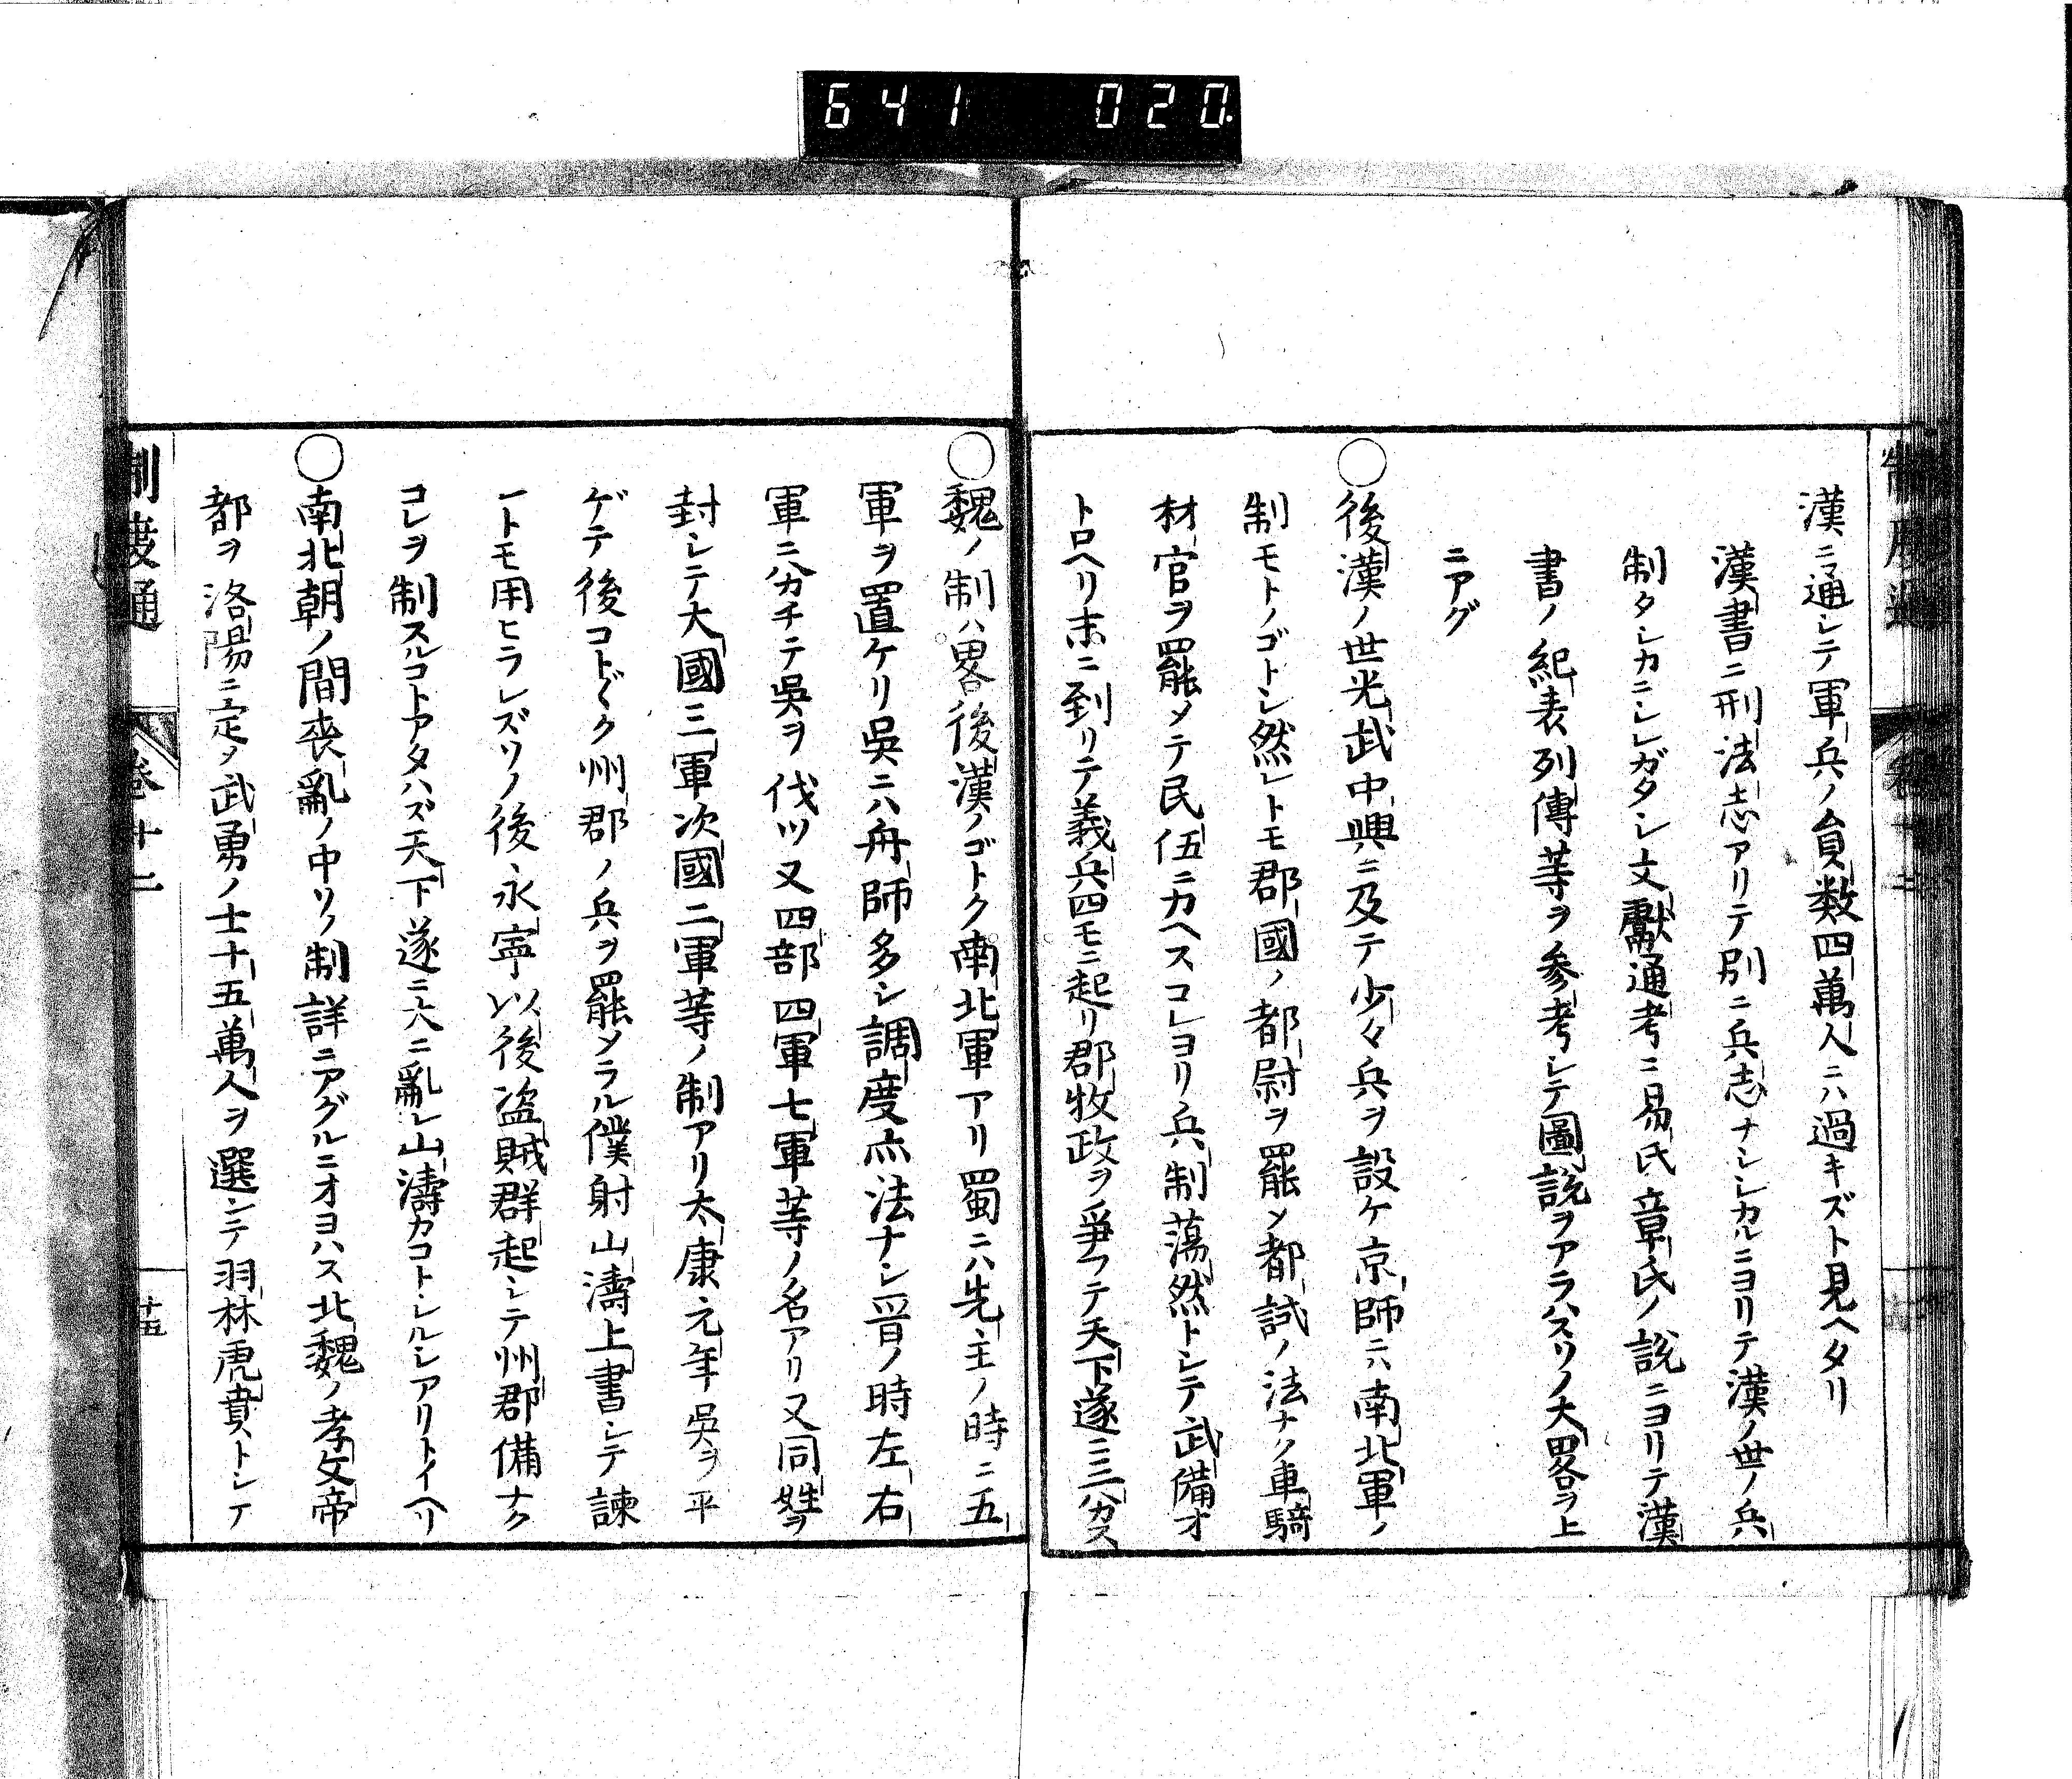 641 020
漢ニ通シテ軍兵ノ員数四萬人ニハ過キズト見ヘタリ
漢書ニ刑法志アリテ別ニ兵志ナシシカルニヨリテ漢ノ世ノ兵
制タシカニシレガタシ文獻通考ニ易氏章氏ノ說ニヨリテ漢
書ノ紀表列傳等ヲ参考シテ圖說ヲアラハスソノ大畧ヲ上
ニアグ
○後漢ノ世光武中興ニ及テ少々兵ヲ設ケ京師ニハ南北軍ノ
制モトノゴトシ然レトモ郡國ノ都尉ヲ罷メ都試ノ法ナク車騎
材官ヲ罷メテ民伍ニカヘスコレヨリ兵制蕩然トシテ武備オ
トロヘリ末ニ到リテ義兵四モニ起リ郡牧政ヲ爭フテ天下遂ニ三ニ分カス
○魏ノ制ハ畧後漢ノゴトク南北軍アリ蜀ニハ先主ノ時ニ五
軍ヲ置ケリ吳ニハ舟師多シ調度亦法ナシ晉ノ時左右
軍ニ分カチテ吳ヲ伐ツ又四部四軍七軍等ノ名アリ又同姓ヲ
封シテ大國三軍次國二軍等ノ制アリ太康元年吳ヲ平
ゲテ後コトゴトク州郡ノ兵ヲ罷メラル僕射山濤上書シテ諫
ートモ用ヒラレズソノ後永寧以後盗賊群起シテ州郡備ナク
コレヲ制スルコトアタハズ天下遂ニ大ニ亂レ山濤カコトシルシアリトイヘリ
○南北朝ノ間喪亂ノ中ソノ制詳ニアグルニオヨハス北魏ノ孝文帝
都ヲ洛陽ニ定メ武勇ノ士十五萬人ヲ選シテ羽林虎賁トシテ
制度通 卷十二 十五